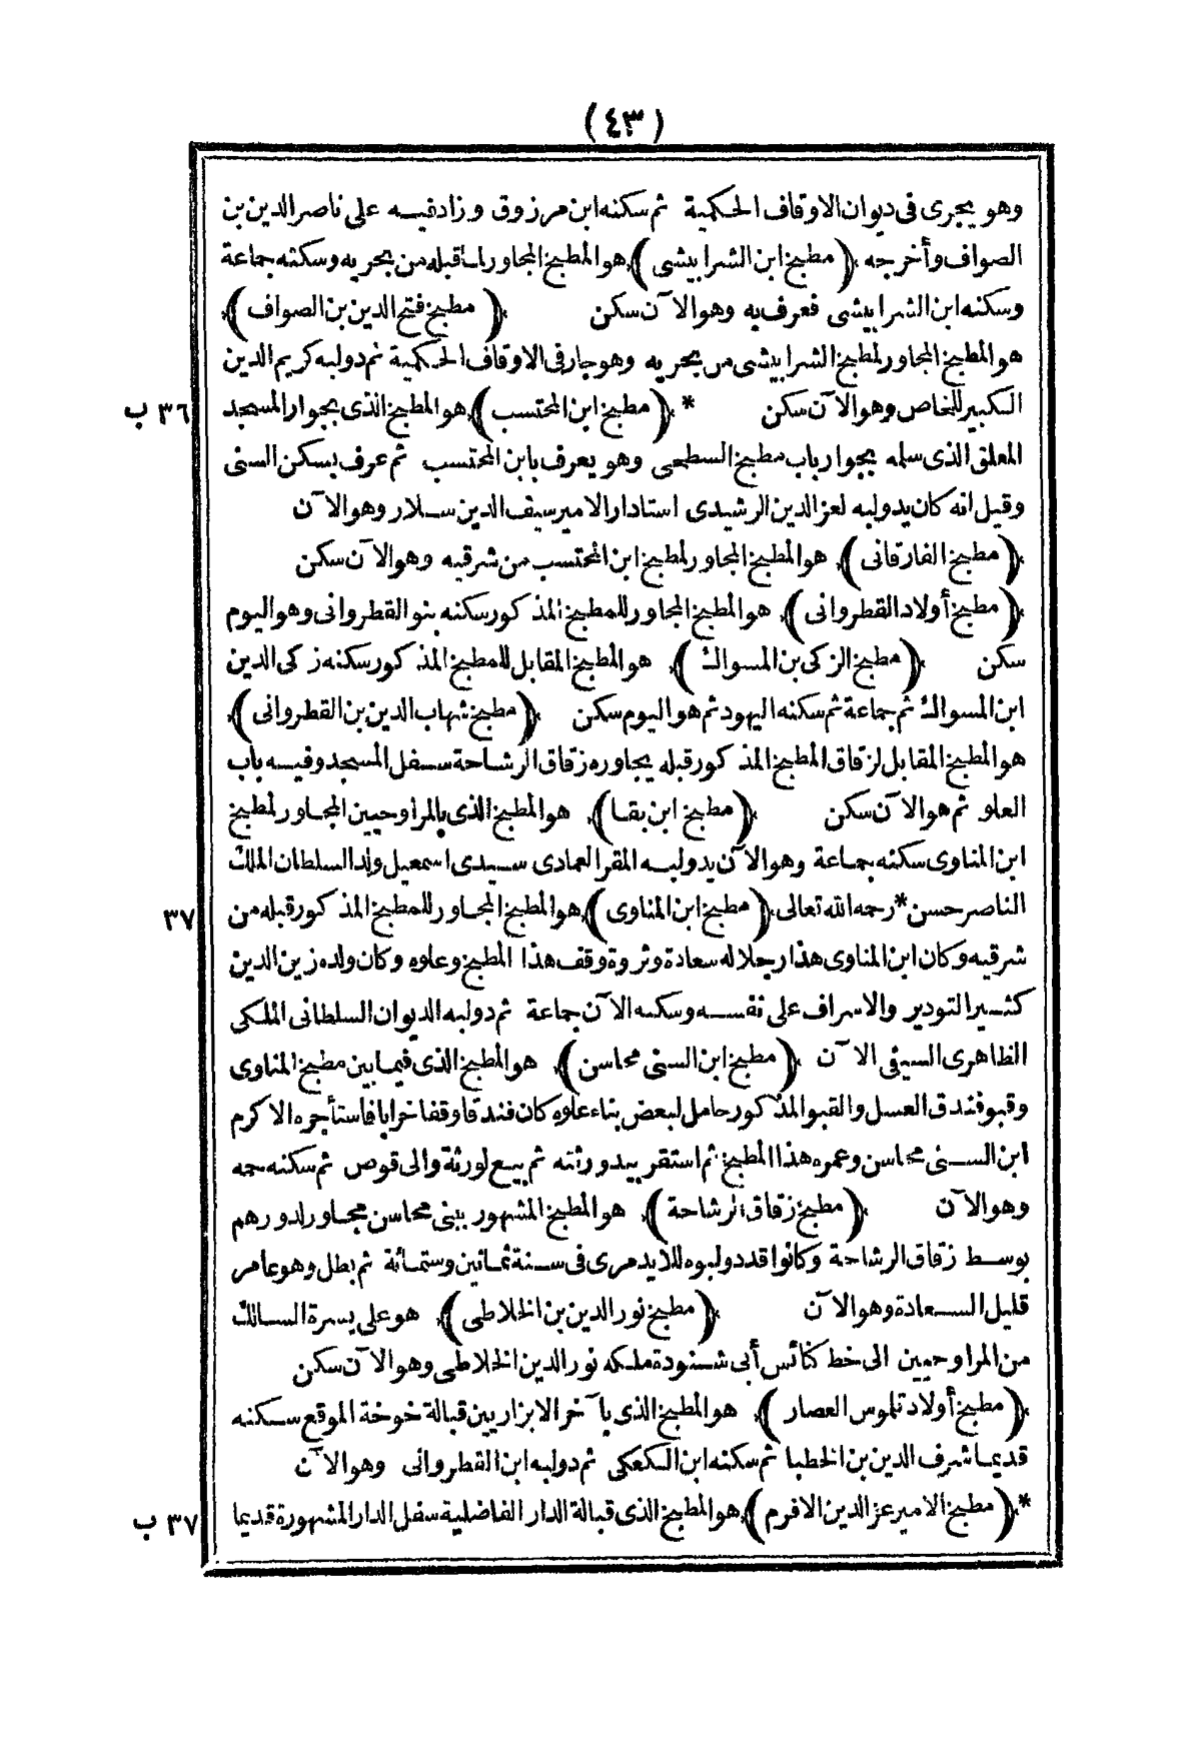 (٤٣)
وهو يجرى فى ديوان الاوقاف الحكمية ثم سكنه ابن مرزوق وزاد فيه على ناصر الدين بن
الصواف وأخرجه (مطبخ ابن الشرابيشى) هو المطبخ المجاور لما قبله من بحريه وسكنه جماعة
وسكنه ابن الشرابيشى فعرف به وهو الآن سكن (مطبخ فتح الدين بن الصواف)
هو المطبخ المجاور لمطبخ الشرابيشى من بحريه وهو جار فى الاوقاف الحكمية ثم دولبه كريم الدين
الكبير للخاص وهو الآن سكن * (مطبخ ابن المحتسب) هو المطبخ الذى بجوار المسجد ٣٦ ب
المعلق الذى سلمه بجوار باب مطبخ السطحى وهو يعرف بابن المحتسب ثم عرف بسكن السنى
وقيل انه كان يدولبه لعز الدين الرشيدى استادار الامير سيف الدين سلار وهو الآن
(مطبخ الفارقانى) هو المطبخ المجاور لمطبخ ابن المحتسب من شرقيه وهو الآن سكن
(مطبخ أولاد القطروانى) هو المطبخ المجاور للمطبخ المذكور سكنه بنو القطروانى وهو اليوم
سكن (مطبخ الزكى بن المسواك) هو المطبخ المقابل للمطبخ المذكور سكنه زكى الدين
ابن المسواك ثم جماعة ثم سكنه اليهود ثم هو اليوم سكن (مطبخ شهاب الدين بن القطروانى)
هو المطبخ المقابل لزقاق المطبخ المذكور قبله يجاوره زقاق الرشاحة سفل المسجد وفيه باب
العلو ثم هو الآن سكن (مطبخ ابن بقا) هو المطبخ الذى بالمراوحيين المجاور لمطبخ
ابن المناوى سكنه جماعة وهو الآن يدولبه المقر العمادى سيدى اسمعيل ولد السلطان الملك
الناصر حسن * رحمه الله تعالى (مطبخ ابن المناوى) هو المطبخ المجاور للمطبخ المذكور قبله من ٣٧
شرقيه وكان ابن المناوى هذا رجلا له سعادة وثروة وقف هذا المطبخ وعلوه وكان ولده زين الدين
كثير التودير والاسراف على نفسه وسكنه الآن جماعة ثم دولبه الديوان السلطانى الملكى
الظاهرى السيفى الآن (مطبخ ابن السنى محاسن) هو المطبخ الذى فيما بين مطبخ المناوى
وقبو فندق العسل والقبو المذكور حامل لبعض بناء علوه كان فندقا وقفا خرابا فاستأجره الاكرم
ابن السنى محاسن وعمره هذا المطبخ ثم استقر بيد ورثته ثم بيع لورثة والى قوص ثم سكنه
وهو الآن (مطبخ زقاق الرشاحة) هو المطبخ المشهور ببنى محاسن مجاور لدورهم
بوسط زقاق الرشاحة وكانوا قد دولبوه للايدمرى فى سنة ثمانين وستمائة ثم بطل وهو عامر
قليل السعادة وهو الآن (مطبخ نور الدين بن الخلاطى) هو على يسرة السالك
من المراوحيين الى خط كنائس أبى شنودة ملكه نور الدين الخلاطى وهو الآن سكن
(مطبخ أولاد تلموس العصار) هو المطبخ الذى بآخر الابزاريين قبالة خوخة الموقع سكنه
قديما شرف الدين بن الخطبا ثم سكنه ابن الكعكى ثم دولبه ابن القطروانى وهو الآن
* (مطبخ الامير عز الدين الافرم) هو المطبخ الذى قبالة الدار الفاضلية سفل الدار المشهورة قديما ٣٧ ب